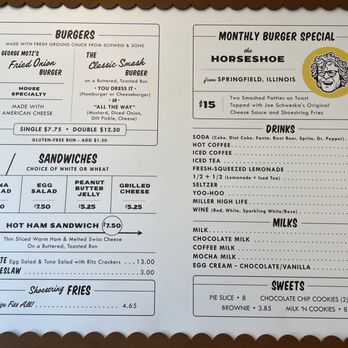 BURGERS
MADE WITH FRESH GROUND CHUCK FROM SCHWEID & SONS
GEORGE MOTZ'S
Fried Onion
BURGER
HOUSE
SPECIALTY
MADE WITH
AMERICAN CHEESE
The
Classic Smash
BURGER
on a Buttered, Toasted Bun
- YOU DRESS IT -
(Hamburger or Cheeseburger)
- OR -
"ALL THE WAY"
(Mustard, Diced Onion,
Dill Pickle, Cheese)
SINGLE $7.75 • DOUBLE $12.50
GLUTEN-FREE BUN - ADD $1.50
SANDWICHES
CHOICE OF WHITE OR WHEAT
NA
LAD
EGG
SALAD
PEANUT
BUTTER
JELLY
GRILLED
CHEESE
$7.50
$5.25
$5.25
HOT HAM SANDWICH $7.50
Thin Sliced Warm Ham & Melted Swiss Cheese
On a Buttered, Toasted Bun
TE Egg Salad & Tuna Salad with Ritz Crackers ... 13.00
ESLAW 3.50
Shoestring FRIES
ze Fits All! 4.65
MONTHLY BURGER SPECIAL
the
HORSESHOE
from SPRINGFIELD, ILLINOIS
$15
Two Smashed Patties on Toast
Topped with Joe Schweska's Original
Cheese Sauce and Shoestring Fries
DRINKS
SODA (Coke, Diet Coke, Fanta, Root Beer, Sprite, Dr. Pepper)
HOT COFFEE
ICED COFFEE
ICED TEA
FRESH-SQUEEZED LEMONADE
1/2 + 1/2 (Lemonade + Iced Tea)
SELTZER
YOO-HOO
MILLER HIGH LIFE
WINE (Red, White, Sparkling White/Rosé)
MILKS
MILK
CHOCOLATE MILK
COFFEE MILK
MOCHA MILK
EGG CREAM - CHOCOLATE/VANILLA
SWEETS
PIE SLICE - 8
CHOCOLATE CHIP COOKIES (2)
BROWNIE - 3.85
MILK 'N COOKIES - 8